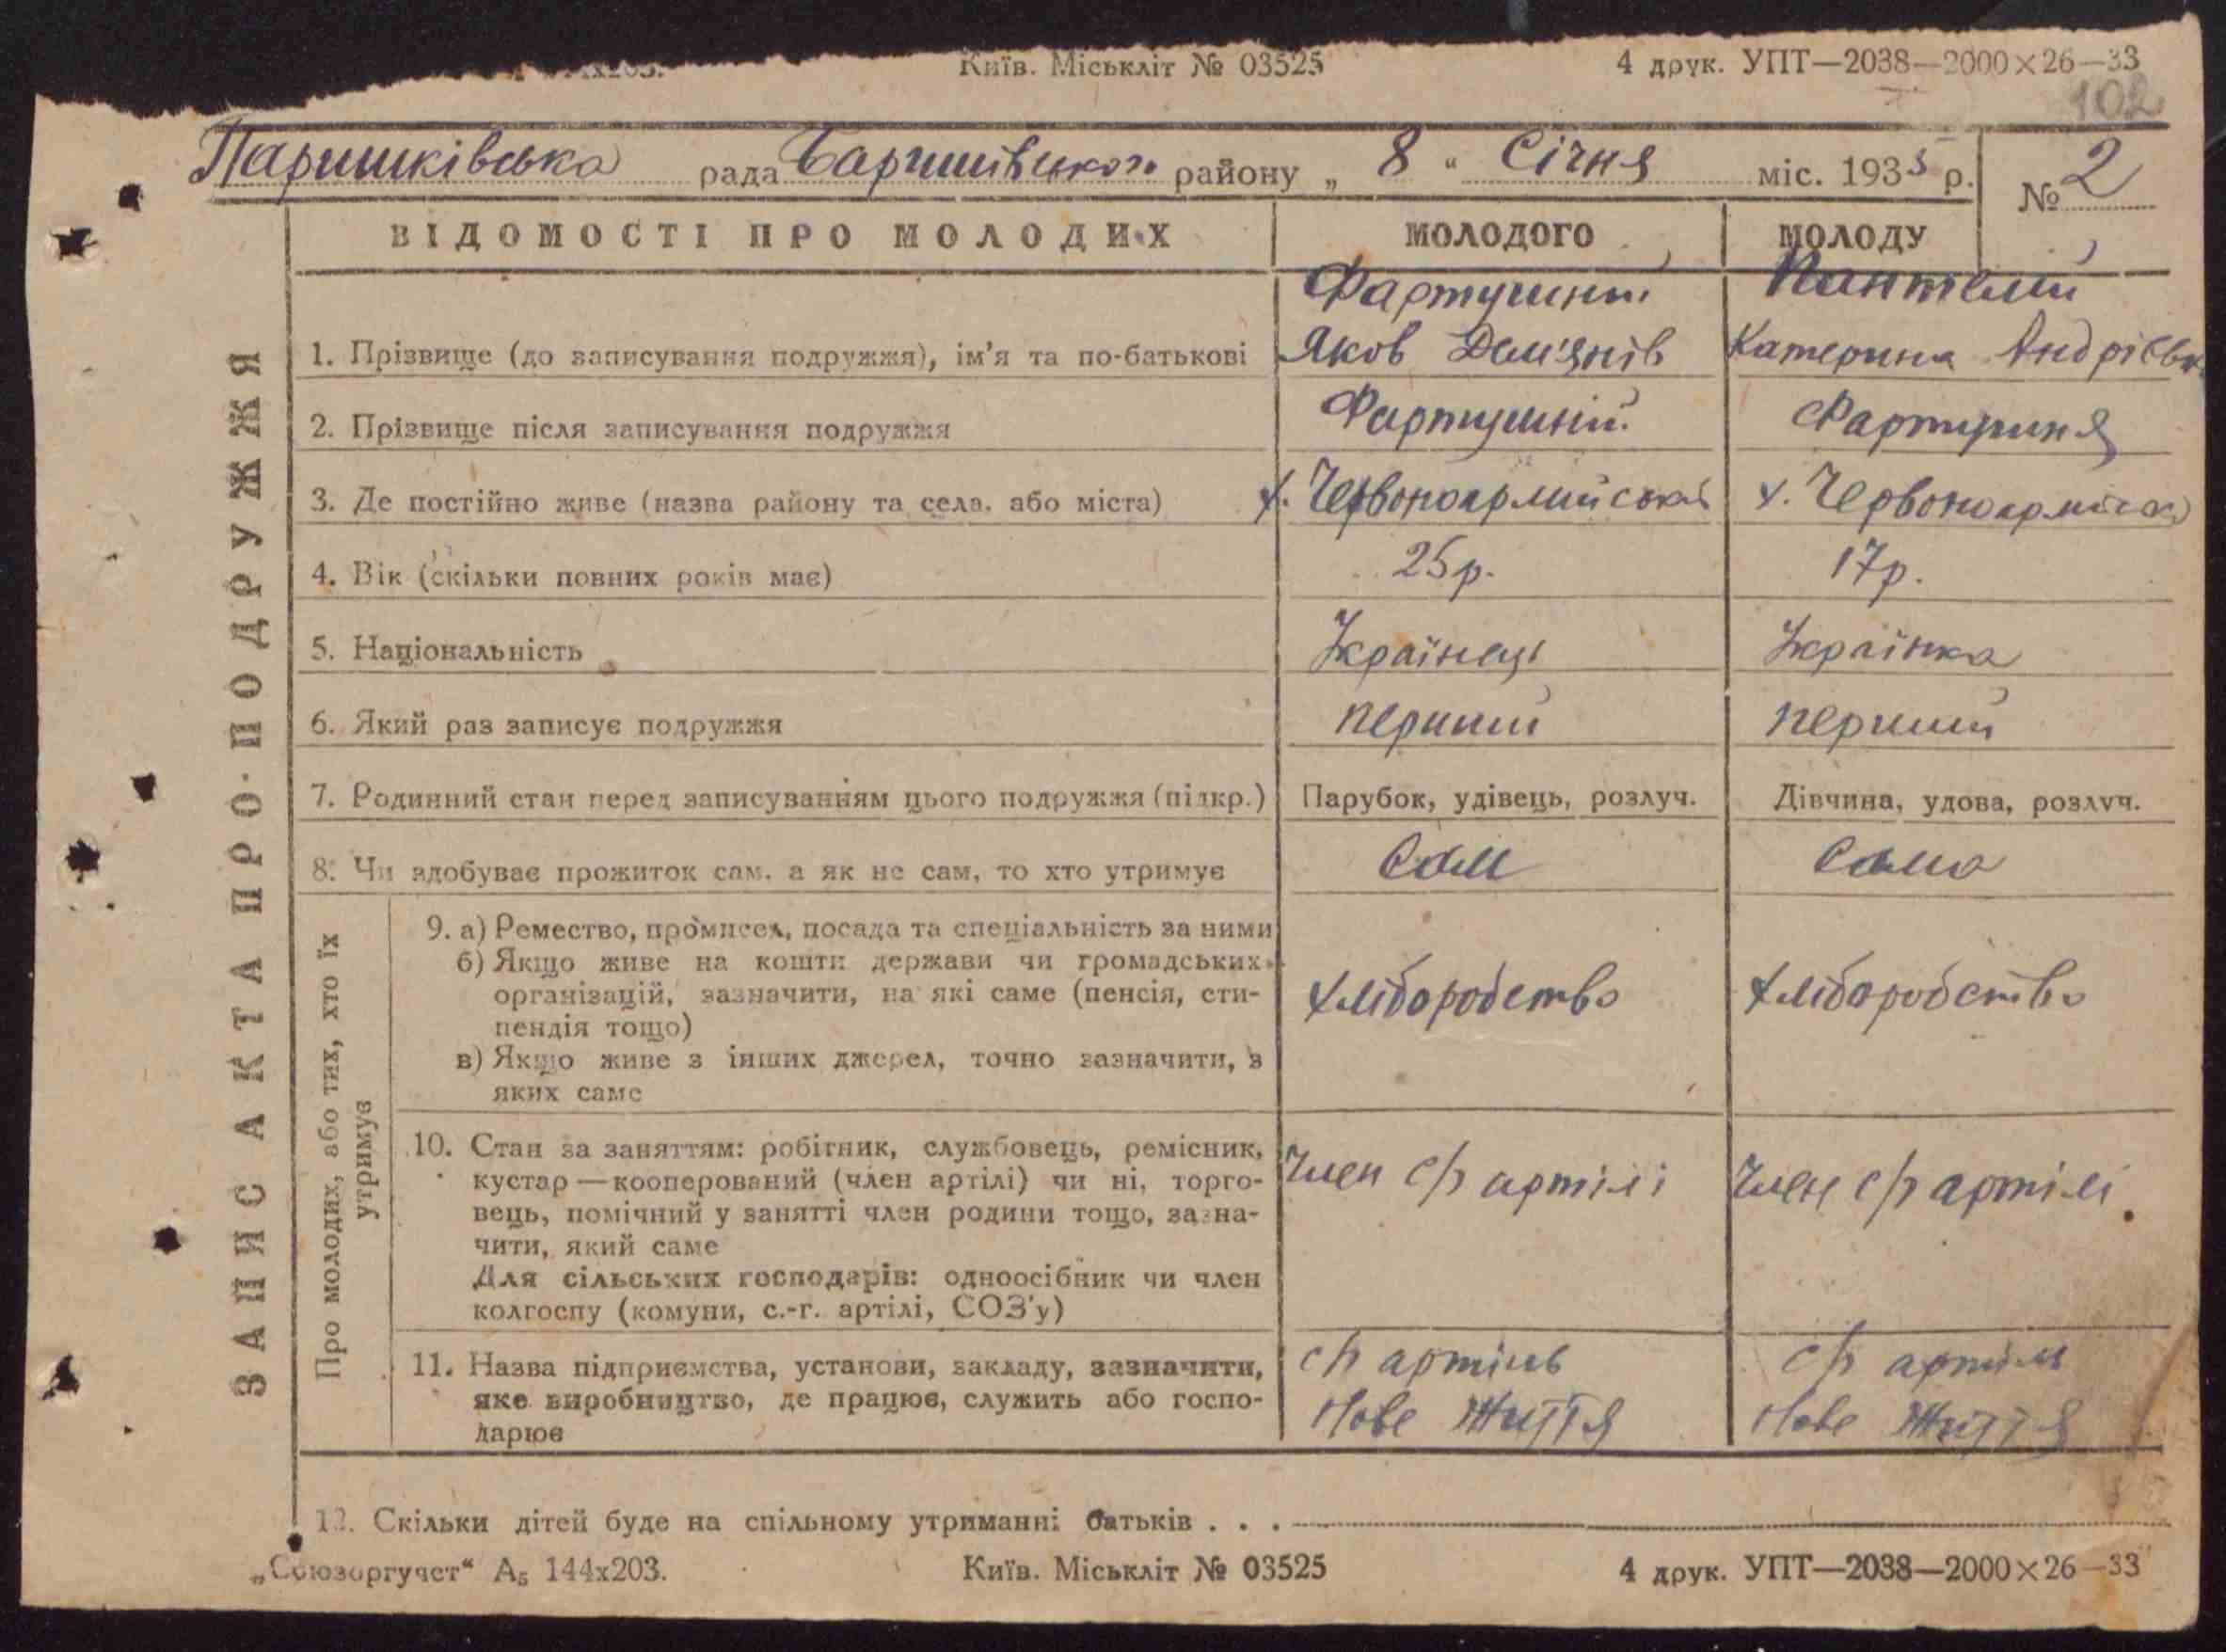 Київ. Міськліт № 03525 4 друк. УПТ—2038—2000×26—33
102
Паришківська рада Баришівського району „ 8 “ Січня міс. 1935 р. № 2
ЗАПИС АКТА ПРО ПОДРУЖЖЯ
ВІДОМОСТІ ПРО МОЛОДИХ МОЛОДОГО МОЛОДУ
1. Прізвище (до записування подружжя), ім’я та по-батькові
Яков Дем'янів
Пантелій
Катерина Андрієвн
2. Прізвище після записування подружжя
3. Де постійно живе (назва району та села, або міста) х. Червоноармійський х. Червоноармійськ
4. Вік (скільки повних років має) 25 р. 17 р.
5. Національність Українець Українка
6. Який раз записує подружжя перший перший
7. Родинний стан перед записуванням цього подружжя (підкр.) Парубок, удівець, розлуч. Дівчина, удова, розлуч.
8. Чи здобуває прожиток сам, а як не сам, то хто утримує Сам Сама
Про молодих, або тих, хто їх
утримує
9. а) Ремество, промисел, посада та спеціальність за ними
б) Якщо живе на кошти держави чи громадських
організацій, зазначити, на які саме (пенсія, сти-
пендія тощо)
в) Якщо живе з інших джерел, точно зазначити, з
яких саме
хліборобство хліборобство
10. Стан за заняттям: робітник, службовець, ремісник,
кустар—кооперований (член артілі) чи ні, торго-
вець, помічний у занятті член родини тощо, зазна-
чити, який саме
Для сільських господарів: одноосібник чи член
колгоспу (комуни, с.-г. артілі, СОЗ’у)
Член с/г артілі Член с/г артілі
11. Назва підприємства, установи, закладу, зазначити,
яке виробництво, де працює, служить або госпо-
дарює
с/г артіль с/г артіль
Нове Життя Нове Життя
12. Скільки дітей буде на спільному утриманні батьків . . .
„Союзоргучет“ А5 144х203. Київ. Міськліт № 03525 4 друк. УПТ—2038—2000×26—33